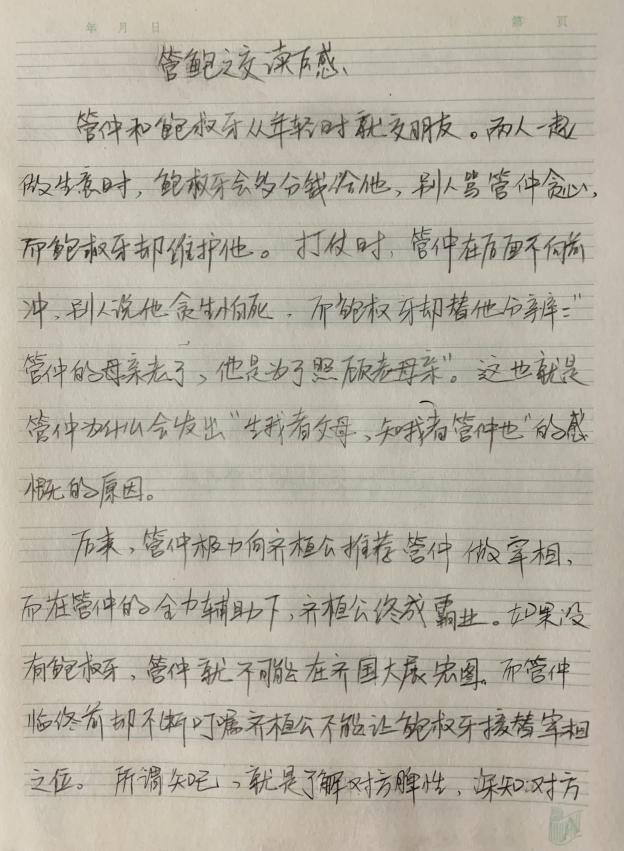 年 月 日 第 页
管鲍之交读后感、
管仲和鲍叔牙从年轻时就交朋友。两人一起
做生意时，鲍叔牙会多分钱给他，别人骂管仲贪心，
而鲍叔牙却维护他。打仗时，管仲在后面不向前
冲，别人说他贪生怕死，而鲍叔牙却替他分辨："
管仲的母亲老了，他是为了照顾老母亲"。这也就是
管仲为什么会发出"生我者父母，知我者管仲也"的感
慨的原因。
后来，管仲极力向齐桓公推荐管仲做宰相，
而在管仲的全力辅助下，齐桓公终成霸业。如果没
有鲍叔牙，管仲就不可能在齐国大展宏图。而管仲
临终前却不断叮嘱齐桓公不能让鲍叔牙接替宰相
之位。所谓知己，就是了解对方脾性，深知对方